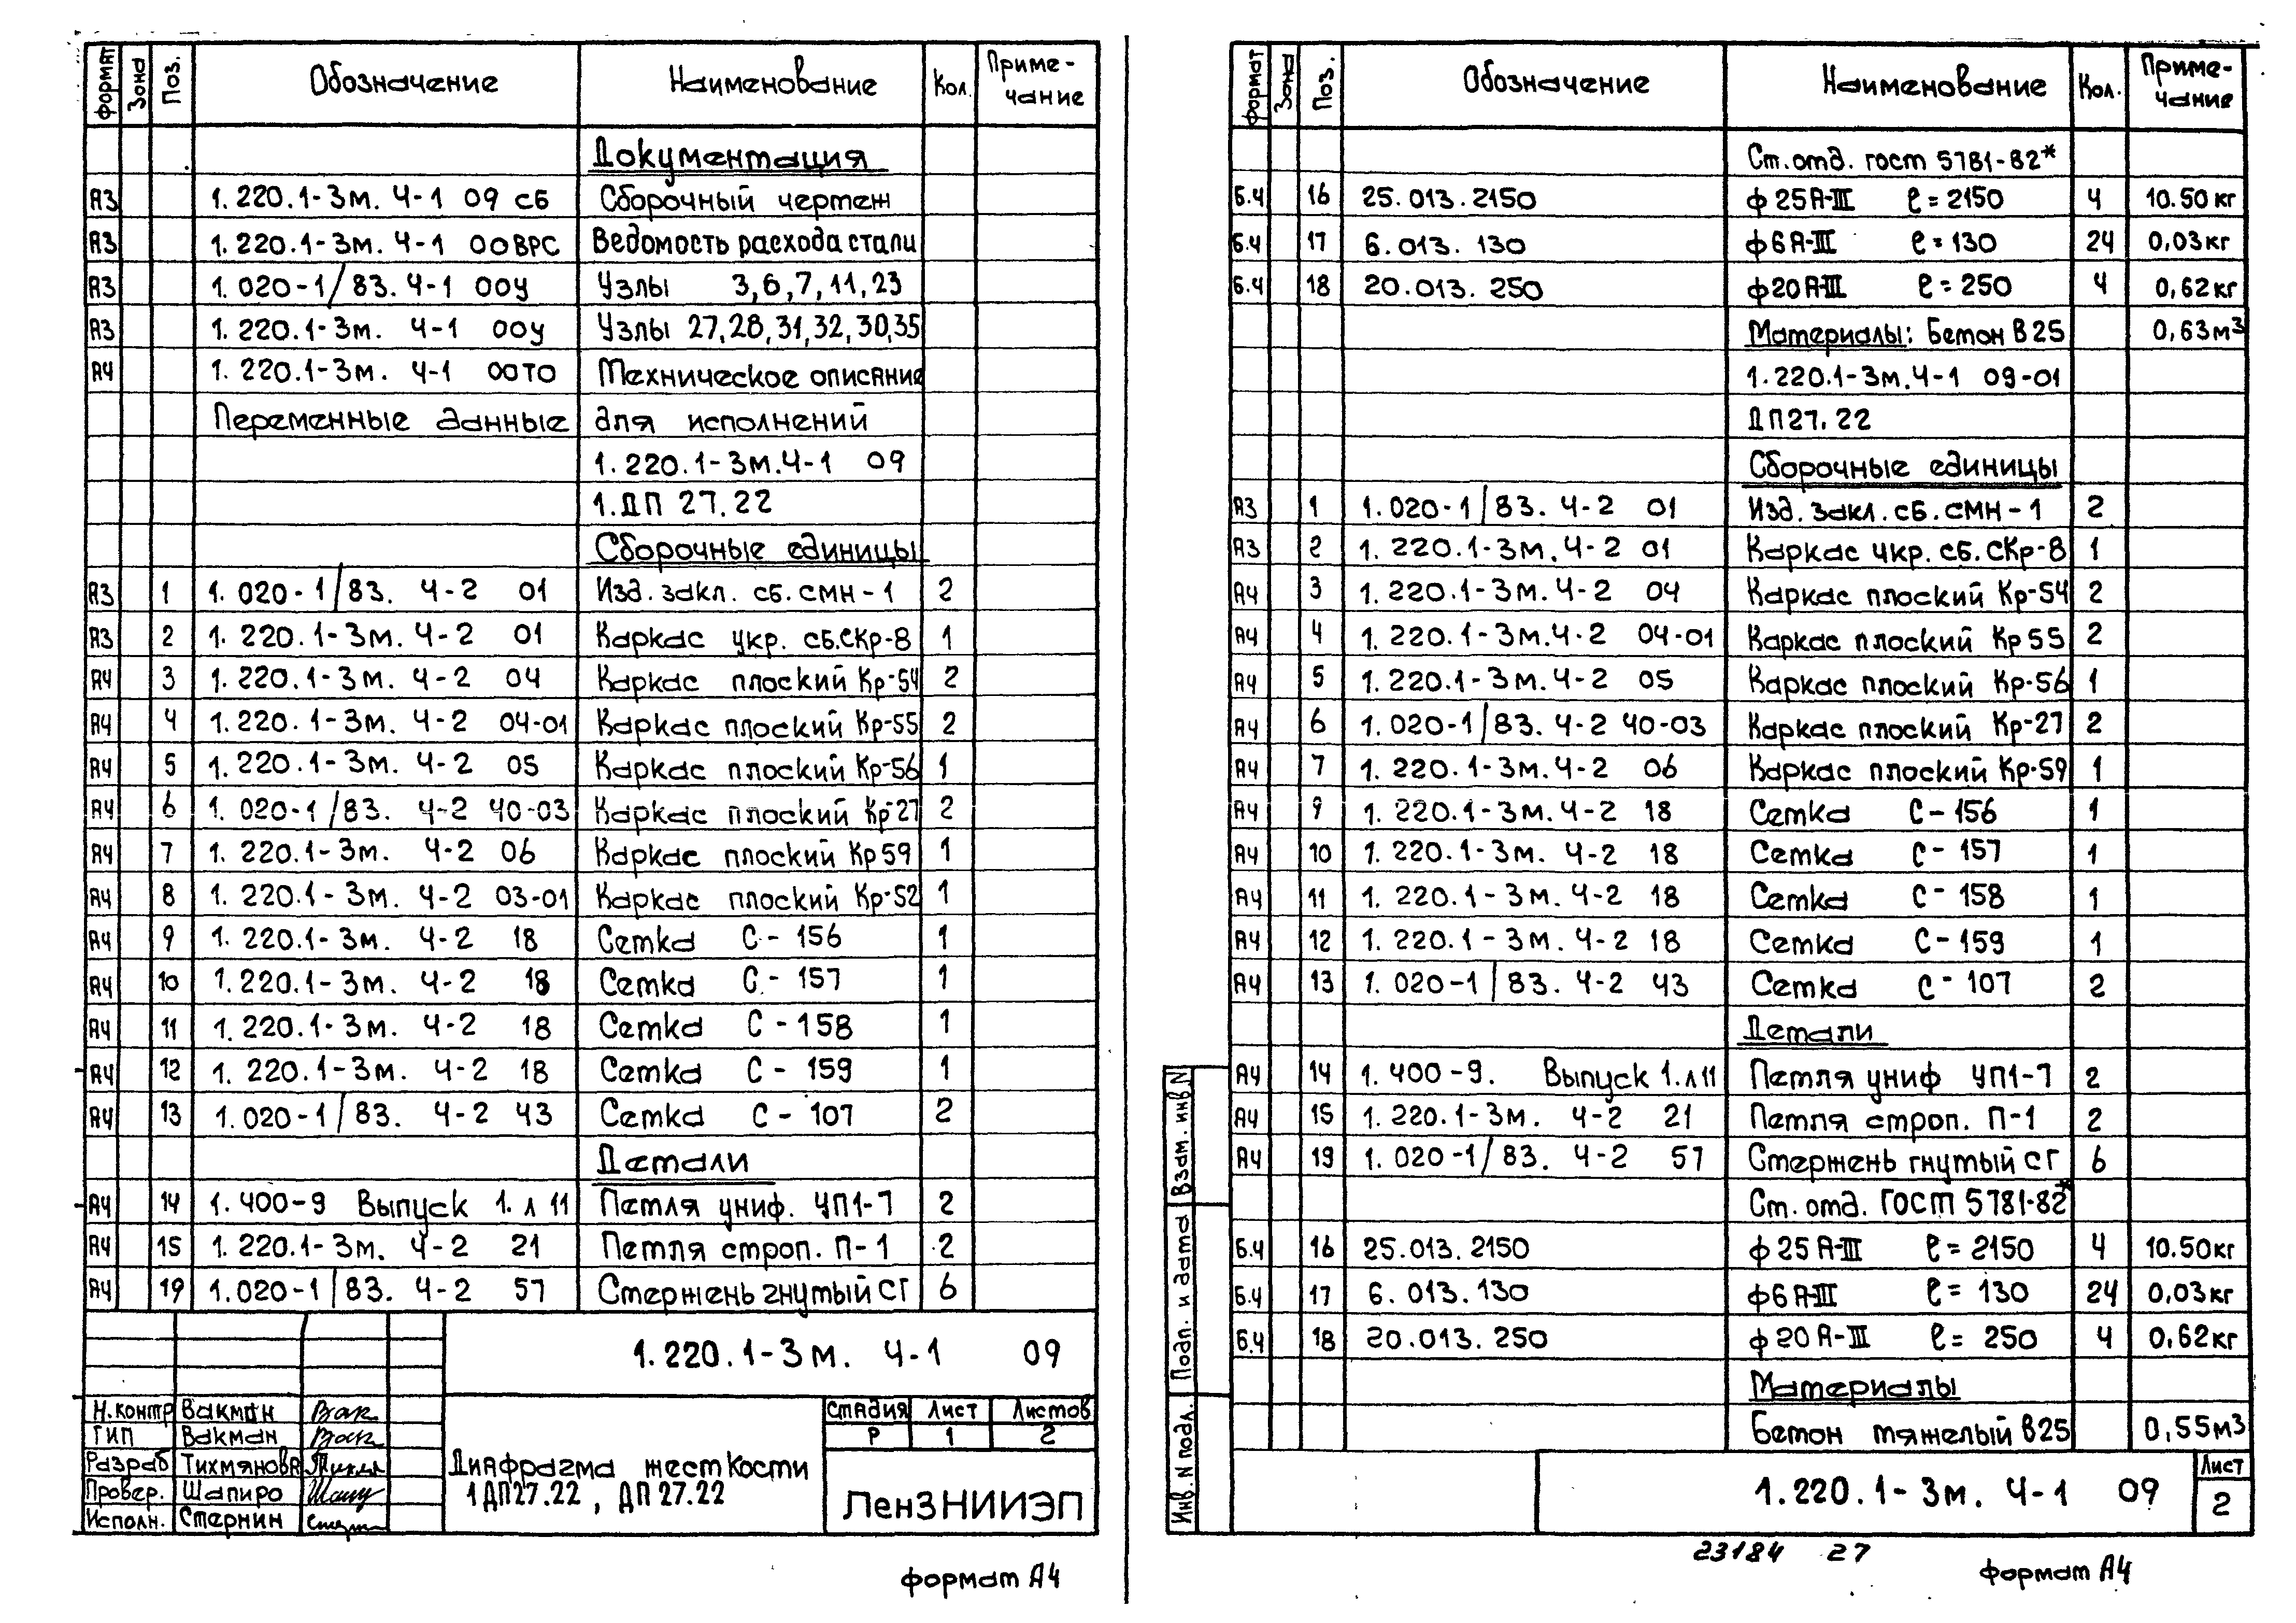 формат Зона Поз. Обозначение Наименование Кол. Приме-чание
Документация
А3 1.220.1-3м. Ч-1 09 СБ Сборочный чертеж
А3 1.220.1-3м. Ч-1 00ВРС Ведомость расхода стали
А3 1.020-1/83. Ч-1 00У Узлы 3,6,7,11,23
А3 1.220.1-3м. Ч-1 00У Узлы 27,28,31,32,30,35
А4 1.220.1-3м. Ч-1 00ТО Техническое описание
Переменные данные для исполнений
1.220.1-3м.Ч-1 09
1.ДП 27.22
Сборочные единицы
А3 1 1.020-1/83. Ч-2 01 Изд. закл. сб. СМН-1 2
А3 2 1.220.1-3м. Ч-2 01 Каркас укр. сб.СКр-8 1
А4 3 1.220.1-3м. Ч-2 04 Каркас плоский Кр-54 2
А4 4 1.220.1-3м. Ч-2 04-01 Каркас плоский Кр-55 2
А4 5 1.220.1-3м. Ч-2 05 Каркас плоский Кр-56 1
А4 6 1.020-1/83. Ч-2 40-03 Каркас плоский Кр-27 2
А4 7 1.220.1-3м. Ч-2 06 Каркас плоский Кр59 1
А4 8 1.220.1-3м. Ч-2 03-01 Каркас плоский Кр-52 1
А4 9 1.220.1-3м. Ч-2 18 Сетка С-156 1
А4 10 1.220.1-3м. Ч-2 18 Сетка С-157 1
А4 11 1.220.1-3м. Ч-2 18 Сетка С-158 1
А4 12 1.220.1-3м. Ч-2 18 Сетка С-159 1
А4 13 1.020-1/83. Ч-2 43 Сетка С-107 2
Детали
А4 14 1.400-9 Выпуск 1. л 11 Петля униф. УП1-7 2
А4 15 1.220.1-3м. Ч-2 21 Петля строп. П-1 2
А4 19 1.020-1/83. Ч-2 57 Стержень гнутый СГ 6
1.220.1-3м. Ч-1 09
Н.контр Вакман
ГИП Вакман
Разраб Тихмянова
Провер. Шапиро
Исполн. Стернин
Диафрагма жесткости
1ДП27.22, ДП27.22
стадия Лист Листов
Р 1 2
ЛенЗНИИЭП
формат А4
формат Зона Поз. Обозначение Наименование Кол. Приме-чание
Ст.отд. гост 5781-82*
Б.Ч 16 25.013.2150 ф25А-III ℓ=2150 4 10.50кг
Б.Ч 17 6.013.130 ф6А-III ℓ=130 24 0,03кг
Б.Ч 18 20.013.250 ф20А-III ℓ=250 4 0,62кг
Материалы: Бетон В25 0,63м3
1.220.1-3м.Ч-1 09-01
ДП27.22
Сборочные единицы
А3 1 1.020-1/83. Ч-2 01 Изд. закл. сб. СМН-1 2
А3 2 1.220.1-3м. Ч-2 01 Каркас укр. сб. СКр-8 1
А4 3 1.220.1-3м. Ч-2 04 Каркас плоский Кр-54 2
А4 4 1.220.1-3м.Ч-2 04-01 Каркас плоский Кр 55 2
А4 5 1.220.1-3м.Ч-2 05 Каркас плоский Кр-56 1
А4 6 1.020-1/83. Ч-2 40-03 Каркас плоский Кр-27 2
А4 7 1.220.1-3м.Ч-2 06 Каркас плоский Кр-59 1
А4 9 1.220.1-3м.Ч-2 18 Сетка С-156 1
А4 10 1.220.1-3м. Ч-2 18 Сетка С-157 1
А4 11 1.220.1-3м. Ч-2 18 Сетка С-158 1
А4 12 1.220.1-3м. Ч-2 18 Сетка С-159 1
А4 13 1.020-1/83. Ч-2 43 Сетка С-107 2
Детали
А4 14 1.400-9. Выпуск 1. л 11 Петля униф УП1-7 2
А4 15 1.220.1-3м. Ч-2 21 Петля строп. П-1 2
А4 19 1.020-1/83. Ч-2 57 Стержень гнутый СГ 6
Ст. отд. ГОСТ 5781-82*
Б.Ч 16 25.013.2150 ф25А-III ℓ=2150 4 10.50кг
Б.Ч 17 6.013.130 ф6А-III ℓ=130 24 0,03кг
Б.Ч 18 20.013.250 ф20А-III ℓ=250 4 0,62кг
Материалы
Бетон тяжелый В25 0,55м3
Взам. инв N
Подп. и дата
Инв. N подл.
1.220.1-3м. Ч-1 09
Лист
2
23184 27
формат А4